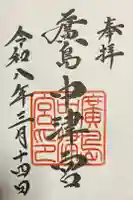 奉拝
廣島
中津宮
廣島中津宮印
令和八年三月十四日